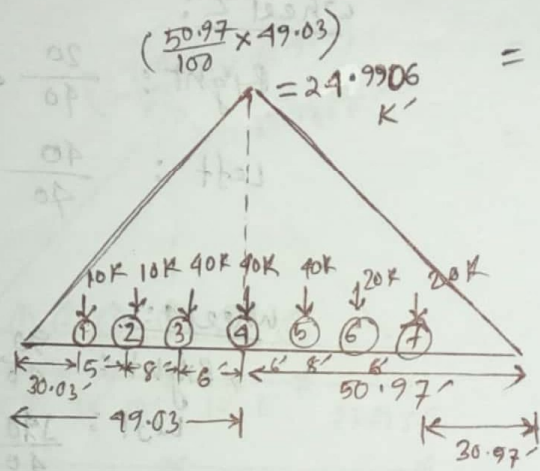 (50.97/100 × 49.03) =
= 24.9906
K'
10K 10K 40K 40K 40K 20K 20K
1 2 3 4 5 6 7
30.03' 5' 8' 6' 6' 8' 6'
50.97'
49.03
30.97'